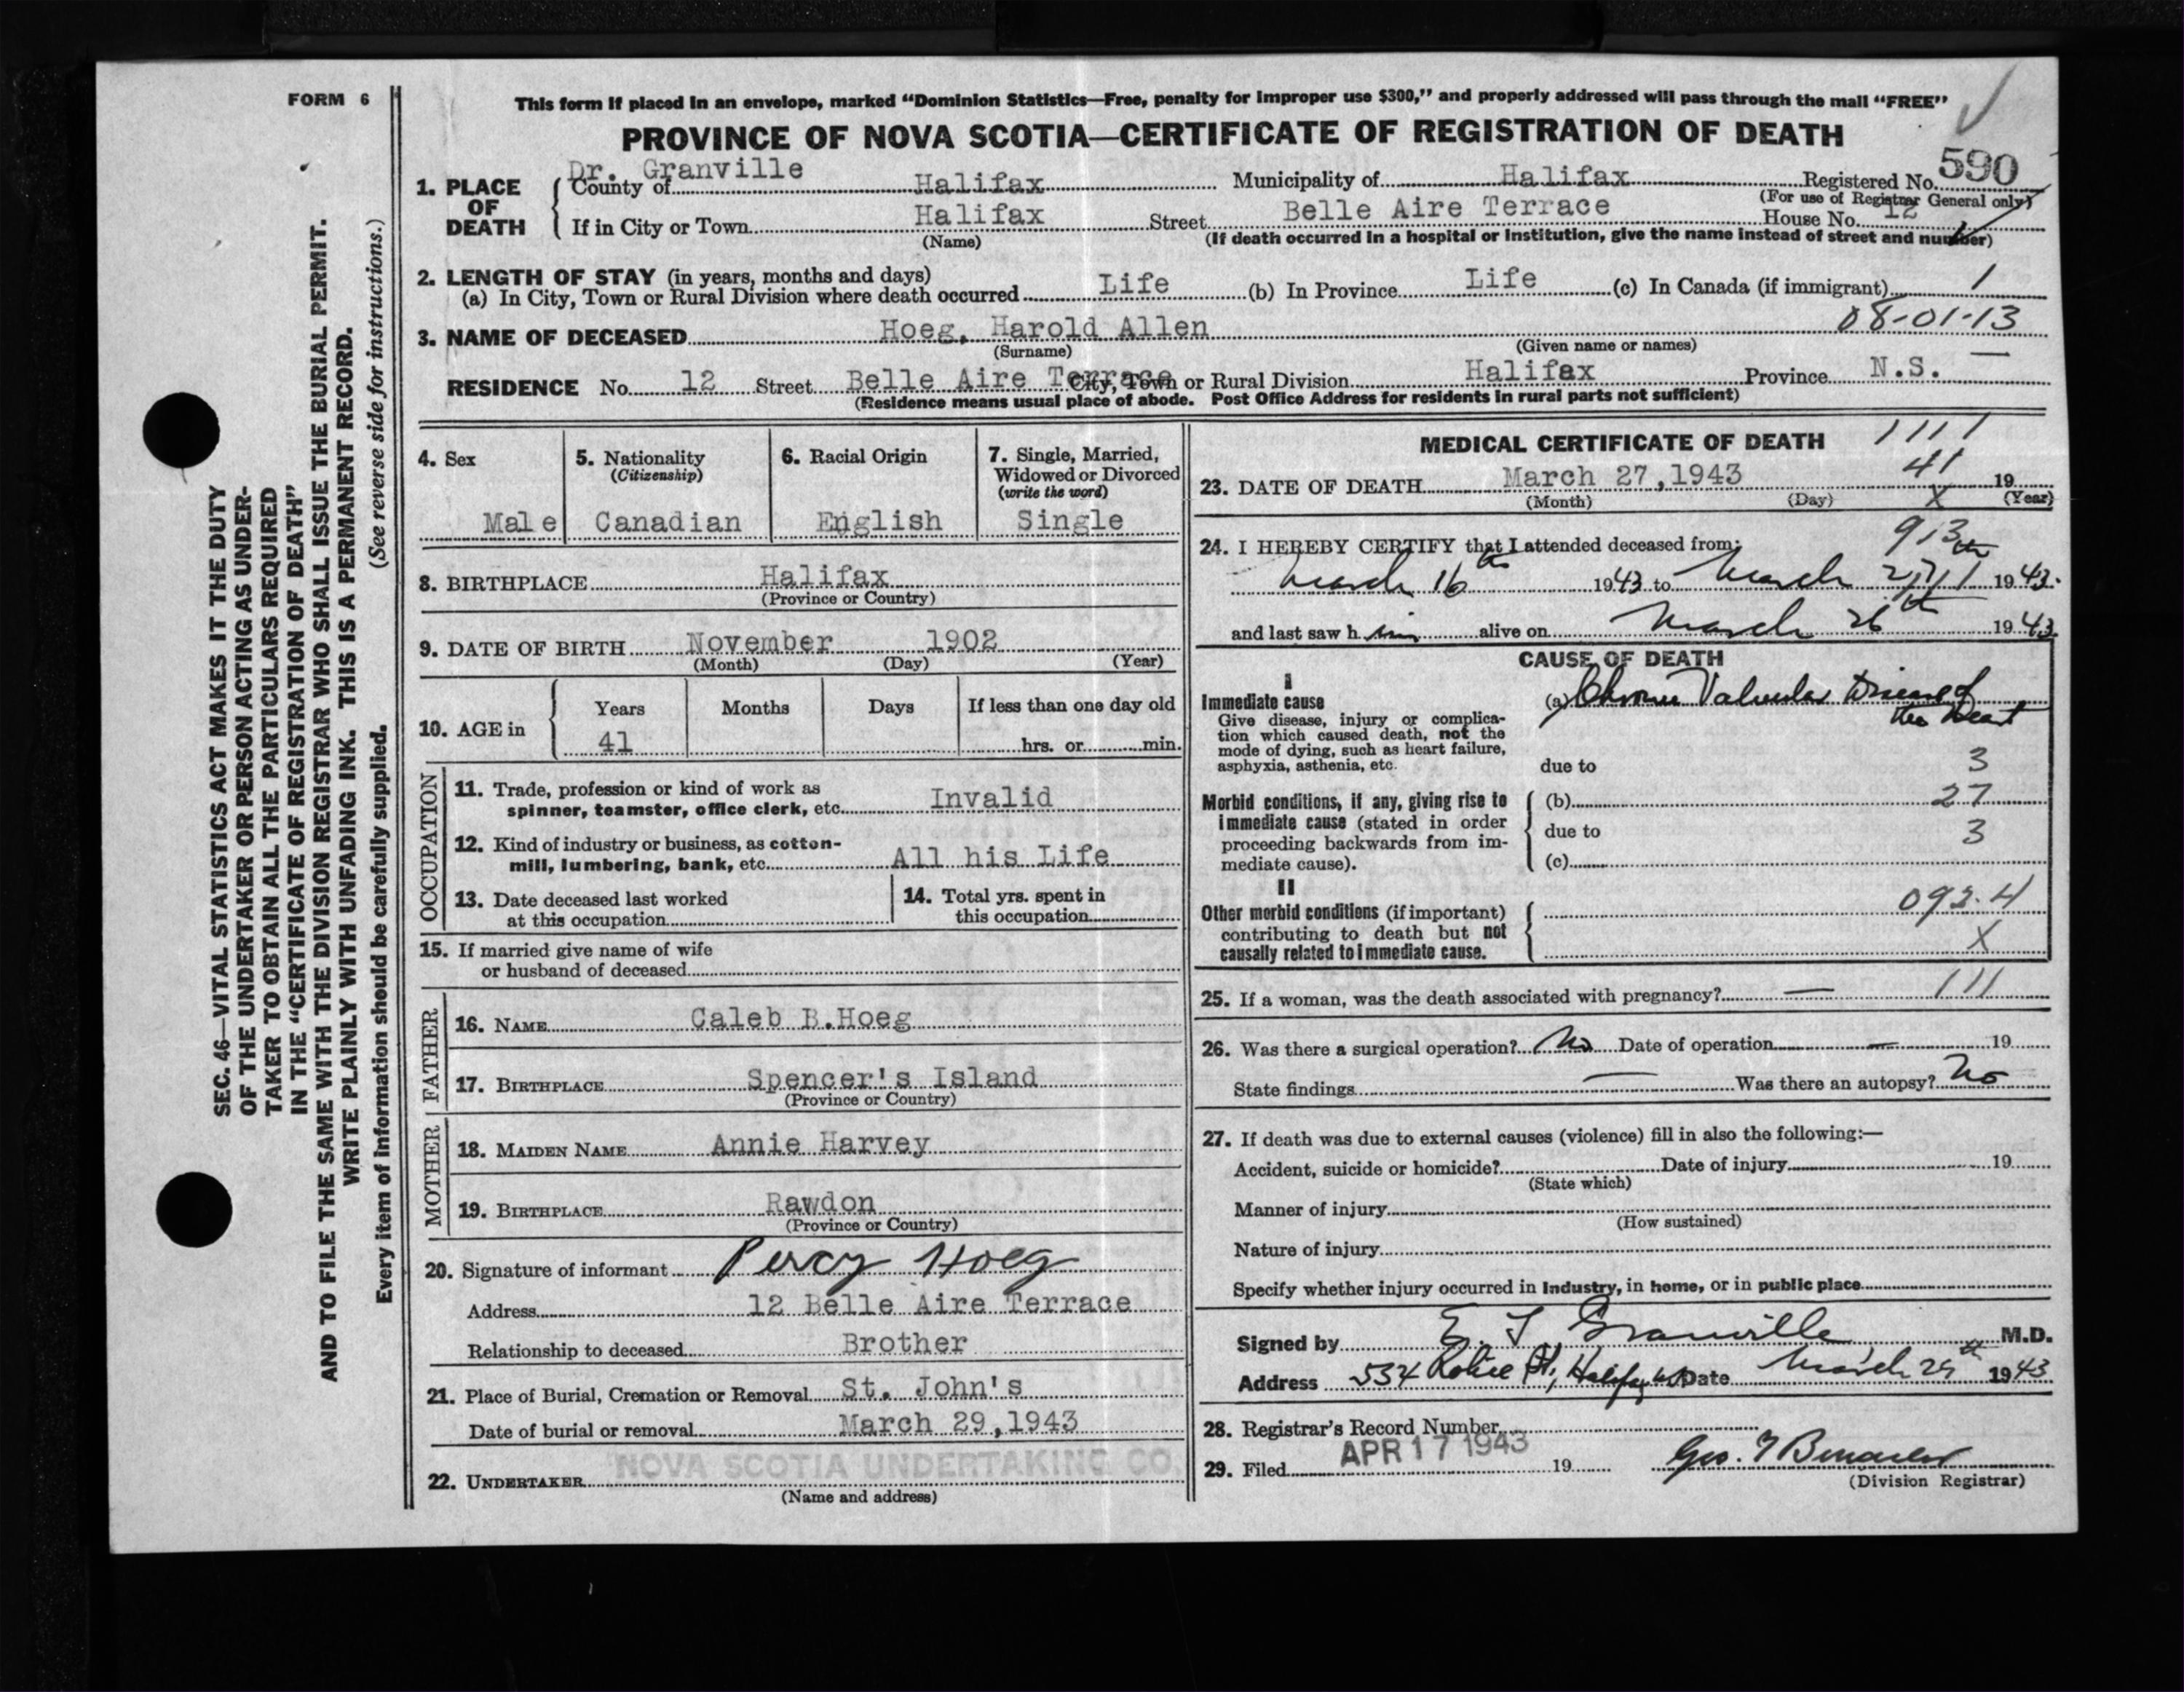 FORM 6
This form if placed in an envelope, marked “Dominion Statistics—Free, penalty for improper use $300,” and properly addressed will pass through the mail “FREE”
PROVINCE OF NOVA SCOTIA—CERTIFICATE OF REGISTRATION OF DEATH
Dr. Granville
590
1. PLACE OF DEATH
County of Halifax Municipality of Halifax Registered No.
(For use of Registrar General only)
If in City or Town Halifax Street Belle Aire Terrace House No. 12
(Name) (If death occurred in a hospital or institution, give the name instead of street and number)
2. LENGTH OF STAY (in years, months and days)
(a) In City, Town or Rural Division where death occurred Life (b) In Province Life (c) In Canada (if immigrant) 1
08-01-13
3. NAME OF DECEASED Hoeg, Harold Allen
(Surname) (Given name or names)
RESIDENCE No. 12 Street Belle Aire Terrace City, Town or Rural Division Halifax Province N.S.
(Residence means usual place of abode. Post Office Address for residents in rural parts not sufficient)
4. Sex
Male
5. Nationality
(Citizenship)
Canadian
6. Racial Origin
English
7. Single, Married,
Widowed or Divorced
(write the word)
Single
8. BIRTHPLACE Halifax
(Province or Country)
9. DATE OF BIRTH November 1902
(Month) (Day) (Year)
10. AGE in
Years Months Days If less than one day old
41 hrs. or min.
OCCUPATION
11. Trade, profession or kind of work as
spinner, teamster, office clerk, etc. Invalid
12. Kind of industry or business, as cotton-
mill, lumbering, bank, etc. All his Life
13. Date deceased last worked
at this occupation
14. Total yrs. spent in
this occupation
15. If married give name of wife
or husband of deceased
FATHER
16. NAME Caleb B.Hoeg
17. BIRTHPLACE Spencer's Island
(Province or Country)
MOTHER
18. MAIDEN NAME Annie Harvey
19. BIRTHPLACE Rawdon
(Province or Country)
20. Signature of informant Percy Hoeg
Address 12 Belle Aire Terrace
Relationship to deceased Brother
21. Place of Burial, Cremation or Removal St. John's
Date of burial or removal March 29,1943
22. UNDERTAKER NOVA SCOTIA UNDERTAKING CO.
(Name and address)
MEDICAL CERTIFICATE OF DEATH 1111
41
23. DATE OF DEATH March 27,1943 19
(Month) (Day) X (Year)
913
24. I HEREBY CERTIFY that I attended deceased from:
March 16th 1943 to March 27th 1943.
and last saw h im alive on March 26th 1943.
CAUSE OF DEATH
I
Immediate cause
Give disease, injury or complica-
tion which caused death, not the
mode of dying, such as heart failure,
asphyxia, asthenia, etc.
(a) Chronic Valvular Disease of
the Heart
due to 3
Morbid conditions, if any, giving rise to
immediate cause (stated in order
proceeding backwards from im-
mediate cause).
(b) 27
due to 3
(c)
II
Other morbid conditions (if important)
contributing to death but not
causally related to immediate cause.
092.4
X
25. If a woman, was the death associated with pregnancy? — 111
26. Was there a surgical operation? No Date of operation — 19
State findings — Was there an autopsy? No
27. If death was due to external causes (violence) fill in also the following:—
Accident, suicide or homicide? Date of injury 19
(State which)
Manner of injury
(How sustained)
Nature of injury
Specify whether injury occurred in industry, in home, or in public place
Signed by E. Granville M.D.
Address St, Halifax Date March 29th 1943
28. Registrar's Record Number
29. Filed APR 17 1943 19 Geo.
(Division Registrar)
SEC. 46—VITAL STATISTICS ACT MAKES IT THE DUTY
OF THE UNDERTAKER OR PERSON ACTING AS UNDER-
TAKER TO OBTAIN ALL THE PARTICULARS REQUIRED
IN THE “CERTIFICATE OF REGISTRATION OF DEATH”
AND TO FILE THE SAME WITH THE DIVISION REGISTRAR WHO SHALL ISSUE THE BURIAL PERMIT.
WRITE PLAINLY WITH UNFADING INK. THIS IS A PERMANENT RECORD.
Every item of information should be carefully supplied. (See reverse side for instructions.)